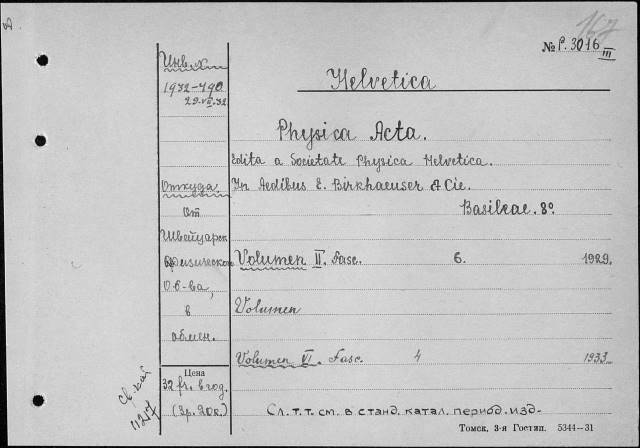 167
№ P. 3016 III
Инв. №
1932-490
29.VII.32
Helvetica
Physica Acta.
Edita a Societate Physica Helvetica.
Откуда.
In Aedibus E. Birkhaeuser & Cie.
От
Basileae. 8°.
Швейцарск
физическою
Volumen II. Fasc. 6. 1929.
О-б-ва,
в
Volumen
обмен.
Volumen VI. Fasc. 4 1933
Цена
32 fr. в год.
(3р. 20к.)
Св. кат
11217
Сл. т.т. см. в станд. катал. период. изд-
Томск, 3-я Гостип. 5344—31